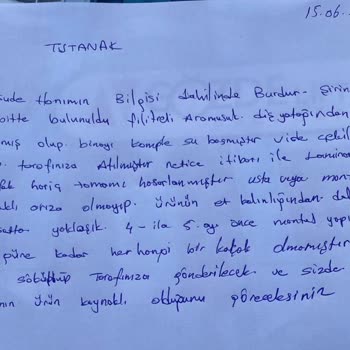 15.06.
TUTANAK
Hanımın Bilgisi dahilinde Burdur - Şirin
bulunuldu filitreli Aromusuk. diş yatağından
mış olup. binayı komple su basmıştır vide çekil
tarafınıza Atılmıştır netice itibarı ile Lamina
hariç tamamı hasarlanmıştır usta veya mon
arıza olmayıp. ürünün et kalınlığından da
yaklaşık. 4 - ila 5. ay önce montaj yapı
güne kadar herhangi bir kaçak olmamıştır
söküp tarafınıza gönderilecek ve sizde
ürün kaynaklı olduğunu göreceksiniz